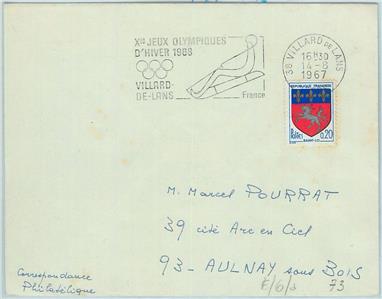 Xes JEUX OLYMPIQUES
D'HIVER 1968
VILLARD-
DE-LANS
France
38 VILLARD DE LANS
16H30
14-8
1967
REPUBLIQUE FRANÇAISE
Postes 0,20
SAINT-LO
M. Marcel POURRAT
39 cité Arc en Ciel
93 - AULNAY sous BOIS
73
Correspondance
Philatélique